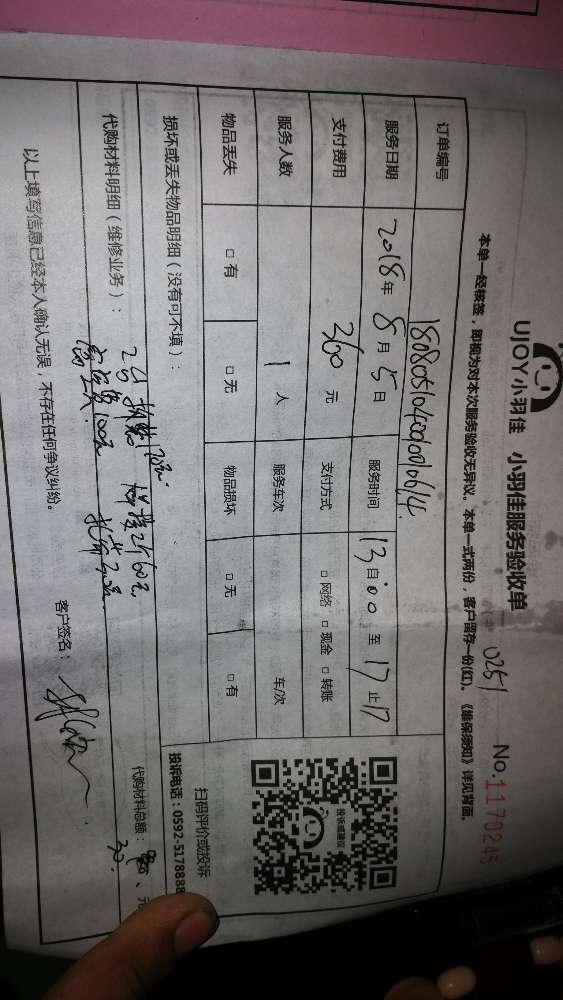 UJOY小羽佳 小羽佳服务验收单 0251 No.1170245
本单一经核签，即视为对本次服务验收无异议。本单一式两份，客户留存一份(红)。《维保须知》详见背面。
订单编号
服务日期 2018年8月5日 服务时间 13 自:00 至 17 止 17
支付费用 360元 支付方式 □网络 □现金 □转账
服务人数 1人 服务车次 车/次
物品丢失 □有 □无 物品损坏 □无 □有
扫码评价或投诉
投诉电话：0592-5178888
投诉或建议
损坏或丢失物品明细（没有可不填）：
代购材料明细（维修业务）：
代购材料总额： 元
以上填写信息已经本人确认无误，不存在任何争议纠纷。 客户签名：